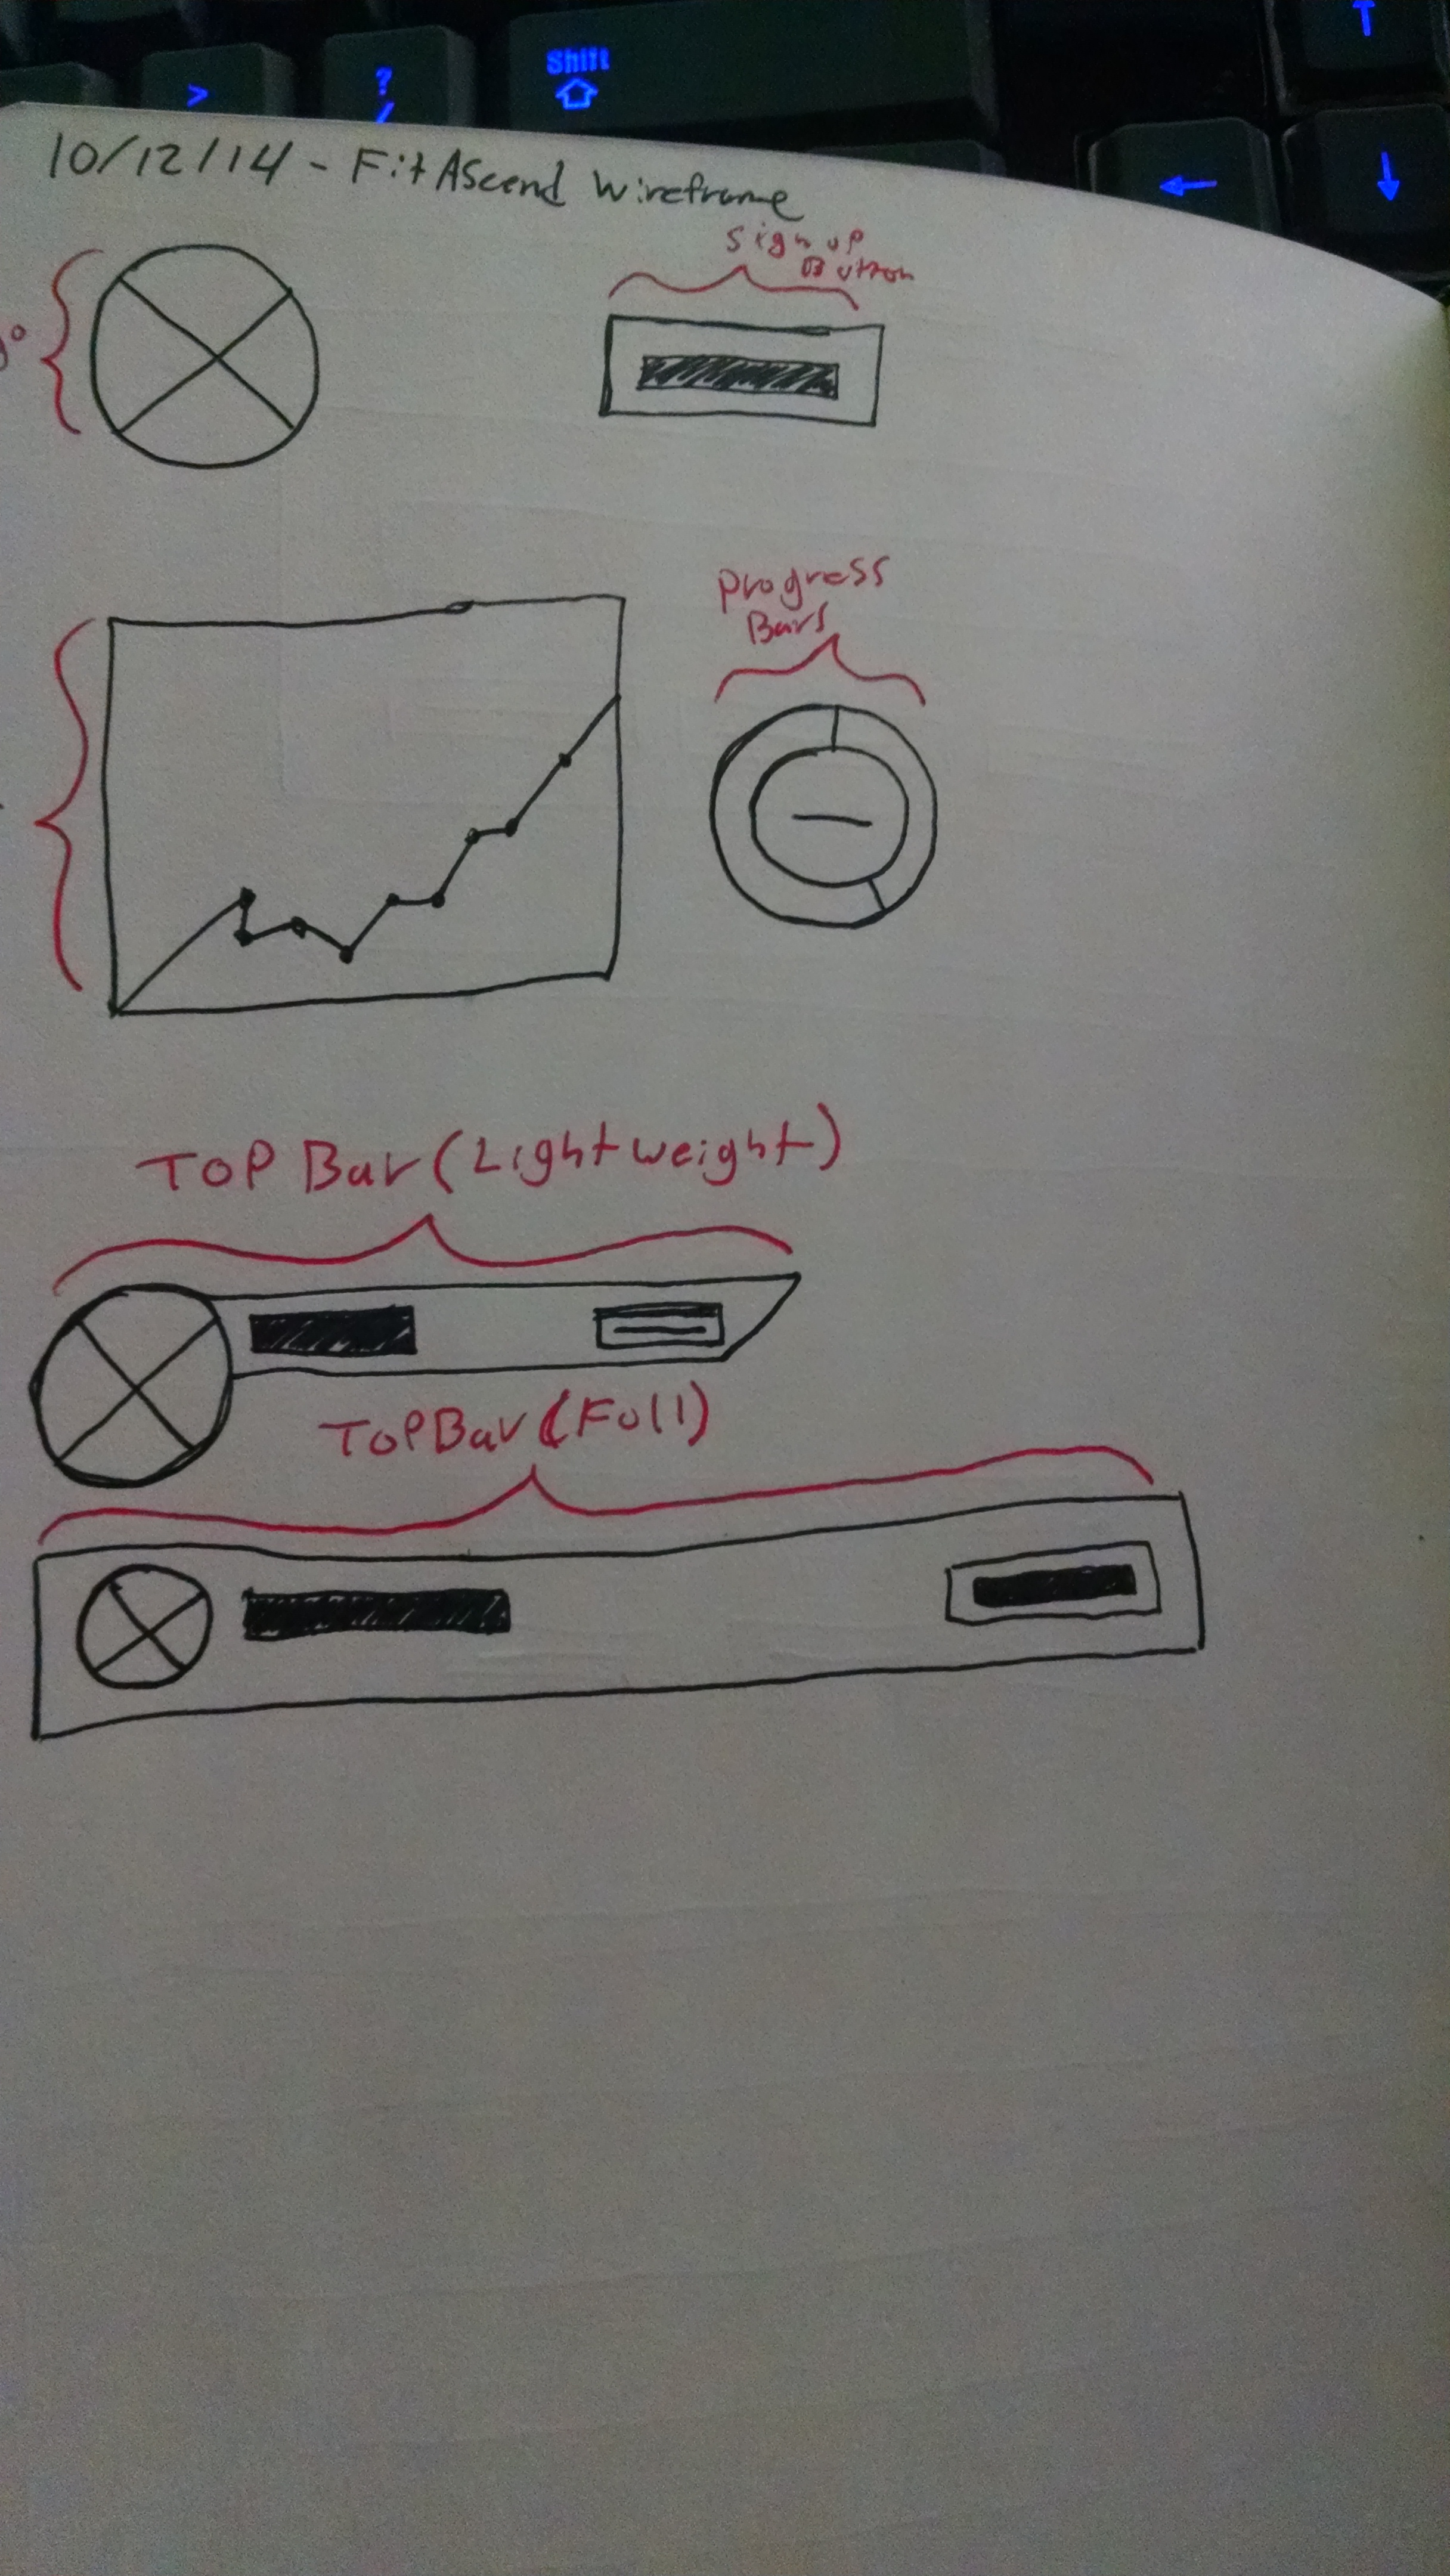 Shift
>
?
/
↑
←
↓
10/12/14 - FitAscend Wireframe
Sign up
Button
Progress
Bars
Top Bar (Lightweight)
Top Bar (Full)